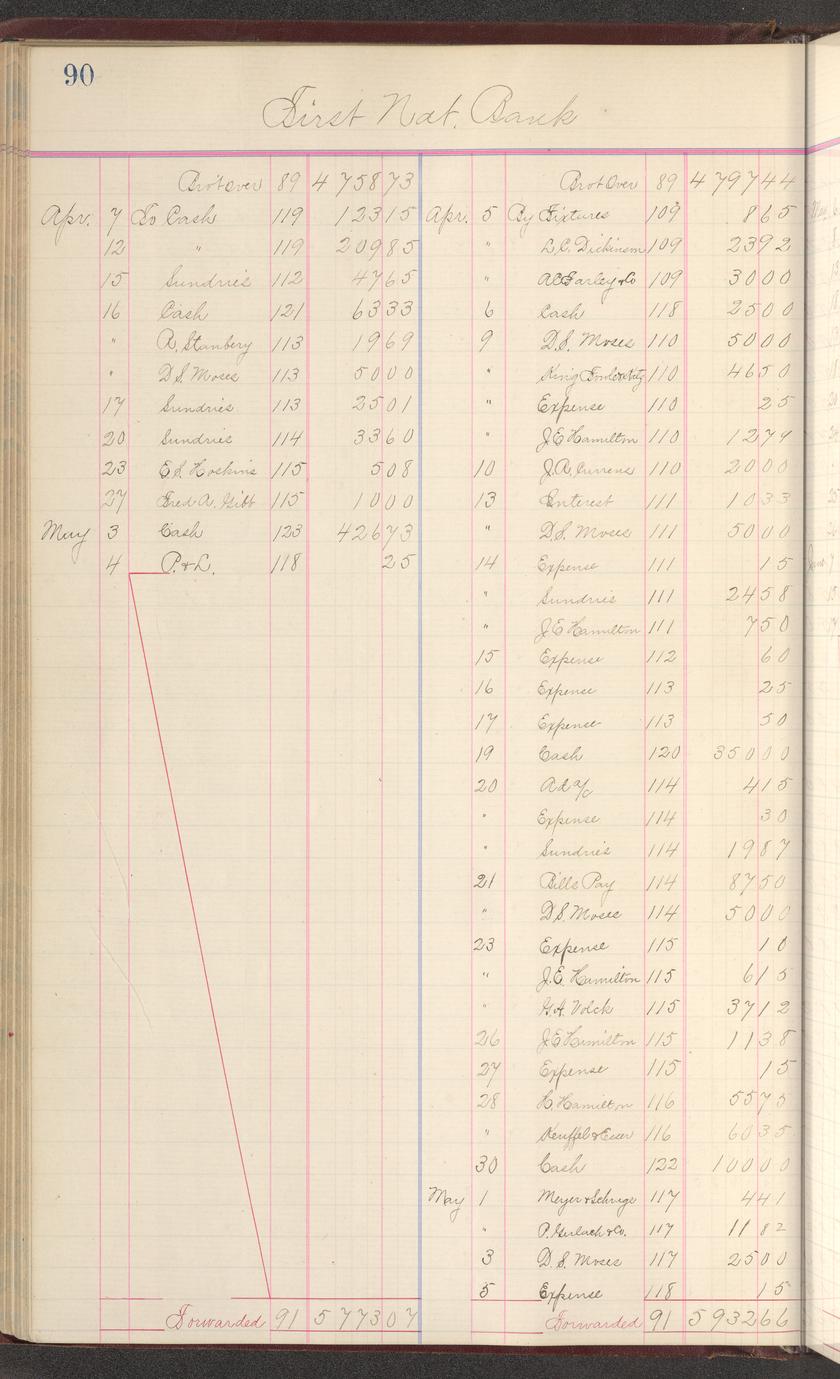 90
First Nat. Bank
Bro't Over 89 4 758 73
Apr. 7 To Cash 119 123 15
12 " 119 209 85
15 Sundries 112 47 65
16 Cash 121 63 33
" R. Stanbery 113 19 69
" D.S. Moses 113 50 00
17 Sundries 113 25 01
20 Sundries 114 33 60
23 E.S. Hoskins 115 5 08
27 Fred A. Gibb 115 10 00
May 3 Cash 123 426 73
4 P. & L. 118 25
Forwarded 91 5 773 07
Brot Over 89 4 797 44
Apr. 5 By Fixtures 109 8 65
" L.C. Dickinson 109 23 92
" A.C. Farley & Co 109 30 00
6 Cash 118 25 00
9 D.S. Moses 110 50 00
" King 110 46 50
" Expense 110 25
" J E Hamilton 110 12 74
10 J.A. Currens 110 20 00
13 Interest 111 10 33
" D.S. Moses 111 50 00
14 Expense 111 15
" Sundries 111 24 58
" J E Hamilton 111 7 50
15 Expense 112 60
16 Expense 113 25
17 Expense 113 50
19 Cash 120 350 00
20 Ad a/c 114 4 15
" Expense 114 30
" Sundries 114 19 87
21 Bills Pay 114 87 50
" D.S. Moses 114 50 00
23 Expense 115 10
" J.E. Hamilton 115 6 15
" G.A. Volck 115 37 12
26 J E Hamilton 115 11 38
27 Expense 115 15
28 H Hamilton 116 55 75
" Keuffel & Esser 116 60 35
30 Cash 122 100 00
May 1 Meyer & Schrage 117 4 41
" P. Gerlach & Co. 117 11 82
3 D.S. Moses 117 25 00
5 Expense 118 15
Forwarded 91 5 932 66